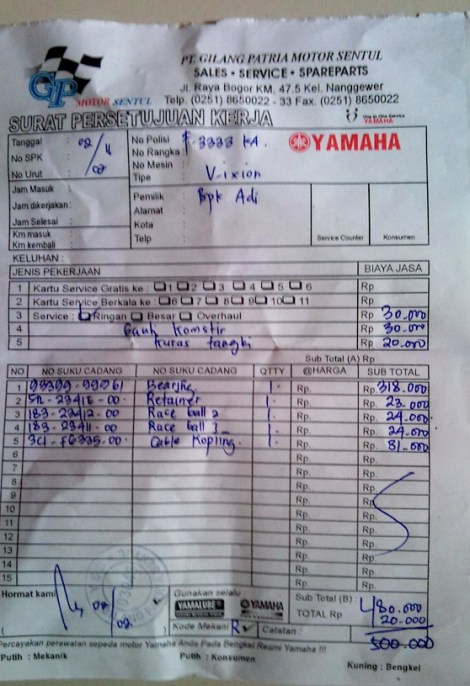 PT. GILANG PATRIA MOTOR SENTUL
SALES • SERVICE • SPAREPARTS
Jl. Raya Bogor KM. 47.5 Kel. Nanggewer
Telp. (0251) 8650022 - 33 Fax. (0251) 8650022
GP MOTOR SENTUL
SURAT PERSETUJUAN KERJA
YAMAHA
Tanggal :
No SPK :
No Urut :
No Polisi : F 3333 KA
No Rangka :
No Mesin :
Tipe : V-ixion
YAMAHA
Jam Masuk :
Jam dikerjakan :
Jam Selesai :
Km masuk :
Km kembali
Pemilik : Bpk Adi
Alamat :
Kota :
Telp :
Service Counter Konsumen
KELUHAN :
JENIS PEKERJAAN BIAYA JASA
1 Kartu Service Gratis ke : 1 2 3 4 5 6 Rp
2 Kartu Service Berkala ke : 6 7 8 9 10 11 Rp
3 Service : Ringan Besar Overhaul Rp 30.000
4 Ganti komstir Rp 30.000
5 Kuras tangki Rp 20.000
Sub Total (A) Rp
NO NO SUKU CADANG NO SUKU CADANG QTTY @HARGA SUB TOTAL
1 1. Rp. Rp. 318.000
2 Retainer 1. Rp. Rp. 23.000
3 183-23412-00. Race ball 2 1. Rp. Rp. 24.000
4 183-23411-00 Race ball 1. Rp. Rp. 24.000
5 Cable Kopling. 1. Rp. Rp. 31.000
6 Rp. Rp.
7 Rp. Rp.
8 Rp. Rp.
9 Rp. Rp.
10 Rp. Rp.
11 Rp. Rp.
12 Rp. Rp.
13 Rp. Rp.
14 Rp. Rp.
15 Rp. Rp.
Hormat kami
Gunakan selalu
YAMALUBE YAMAHA
Kode Mekanik R Catatan :
Sub Total (B) 480.000
TOTAL Rp 20.000
500.000
Percayakan perawatan sepeda motor Yamaha Anda Pada Bengkel Resmi Yamaha !!!
Putih : Mekanik Putih : Konsumen Kuning : Bengkel